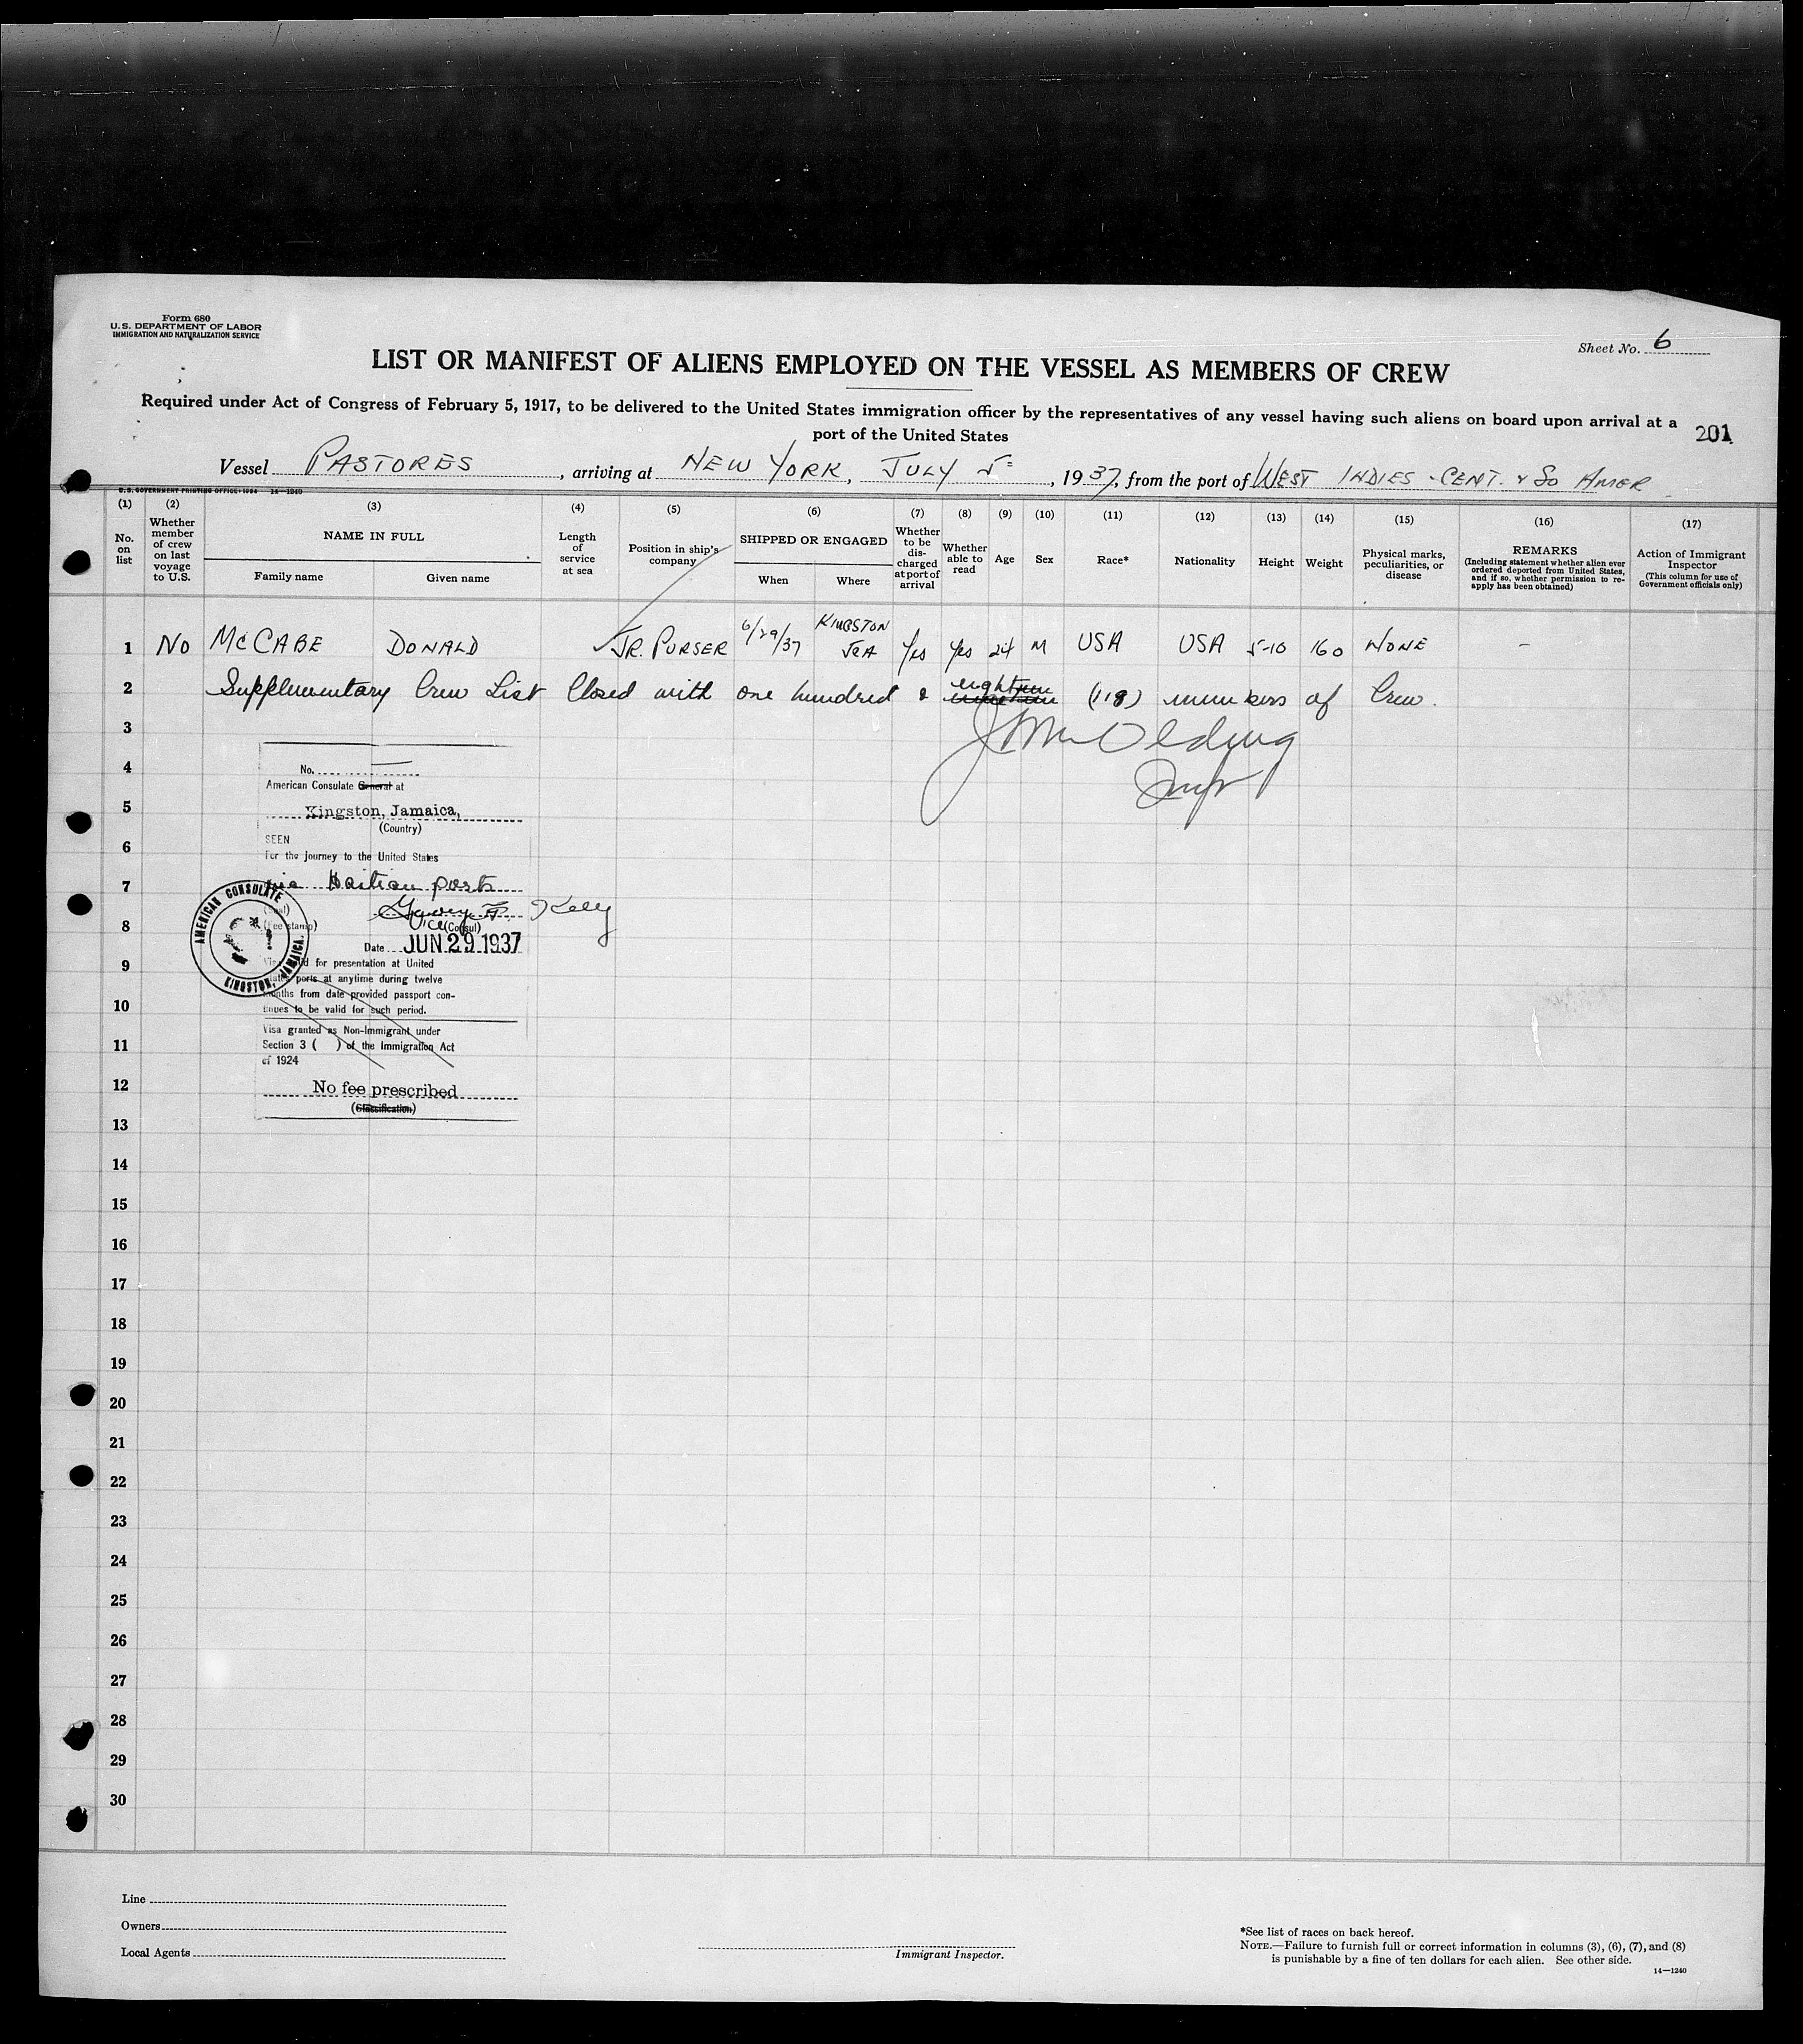 Form 680
U.S. DEPARTMENT OF LABOR
IMMIGRATION AND NATURALIZATION SERVICE
Sheet No. 6
LIST OR MANIFEST OF ALIENS EMPLOYED ON THE VESSEL AS MEMBERS OF CREW
Required under Act of Congress of February 5, 1917, to be delivered to the United States immigration officer by the representatives of any vessel having such aliens on board upon arrival at a
port of the United States
201
Vessel PASTORES, arriving at NEW YORK, JULY 5, 1937, from the port of WEST INDIES - CENT. & SO AMER
U.S. GOVERNMENT PRINTING OFFICE: 1934 14—1240
(1) (2) (3) (4) (5) (6) (7) (8) (9) (10) (11) (12) (13) (14) (15) (16) (17)
No. on list
Whether member of crew on last voyage to U.S.
NAME IN FULL
Family name
Given name
Length of service at sea
Position in ship's company
SHIPPED OR ENGAGED
When
Where
Whether to be discharged at port of arrival
Whether able to read
Age
Sex
Race*
Nationality
Height
Weight
Physical marks, peculiarities, or disease
REMARKS
(Including statement whether alien ever ordered deported from United States, and if so, whether permission to re-apply has been obtained)
Action of Immigrant Inspector
(This column for use of Government officials only)
1 NO McCABE DONALD JR. PURSER 6/29/37 KINGSTON JCA Yes Yes 24 M USA USA 5-10 160 NONE –
2 Supplementary Crew List Closed with one hundred & eighteen (118) members of Crew.
3
4
5
6
7
8
9
10
11
12
13
14
15
16
17
18
19
20
21
22
23
24
25
26
27
28
29
30
No.
American Consulate General at
Kingston, Jamaica,
(Country)
SEEN
For the journey to the United States
via Haitian ports
(Seal)
(Fee stamp)
Kelly
Vice (Consul)
Date JUN 29 1937
AMERICAN CONSULATE
KINGSTON, JAMAICA.
Visa valid for presentation at United
States ports at anytime during twelve
months from date provided passport con-
tinues to be valid for such period.
Visa granted as Non-Immigrant under
Section 3 ( ) of the Immigration Act
of 1924
No fee prescribed
(Classification)
Line
Owners
Local Agents
Immigrant Inspector.
*See list of races on back hereof.
NOTE.—Failure to furnish full or correct information in columns (3), (6), (7), and (8)
is punishable by a fine of ten dollars for each alien. See other side.
14—1240